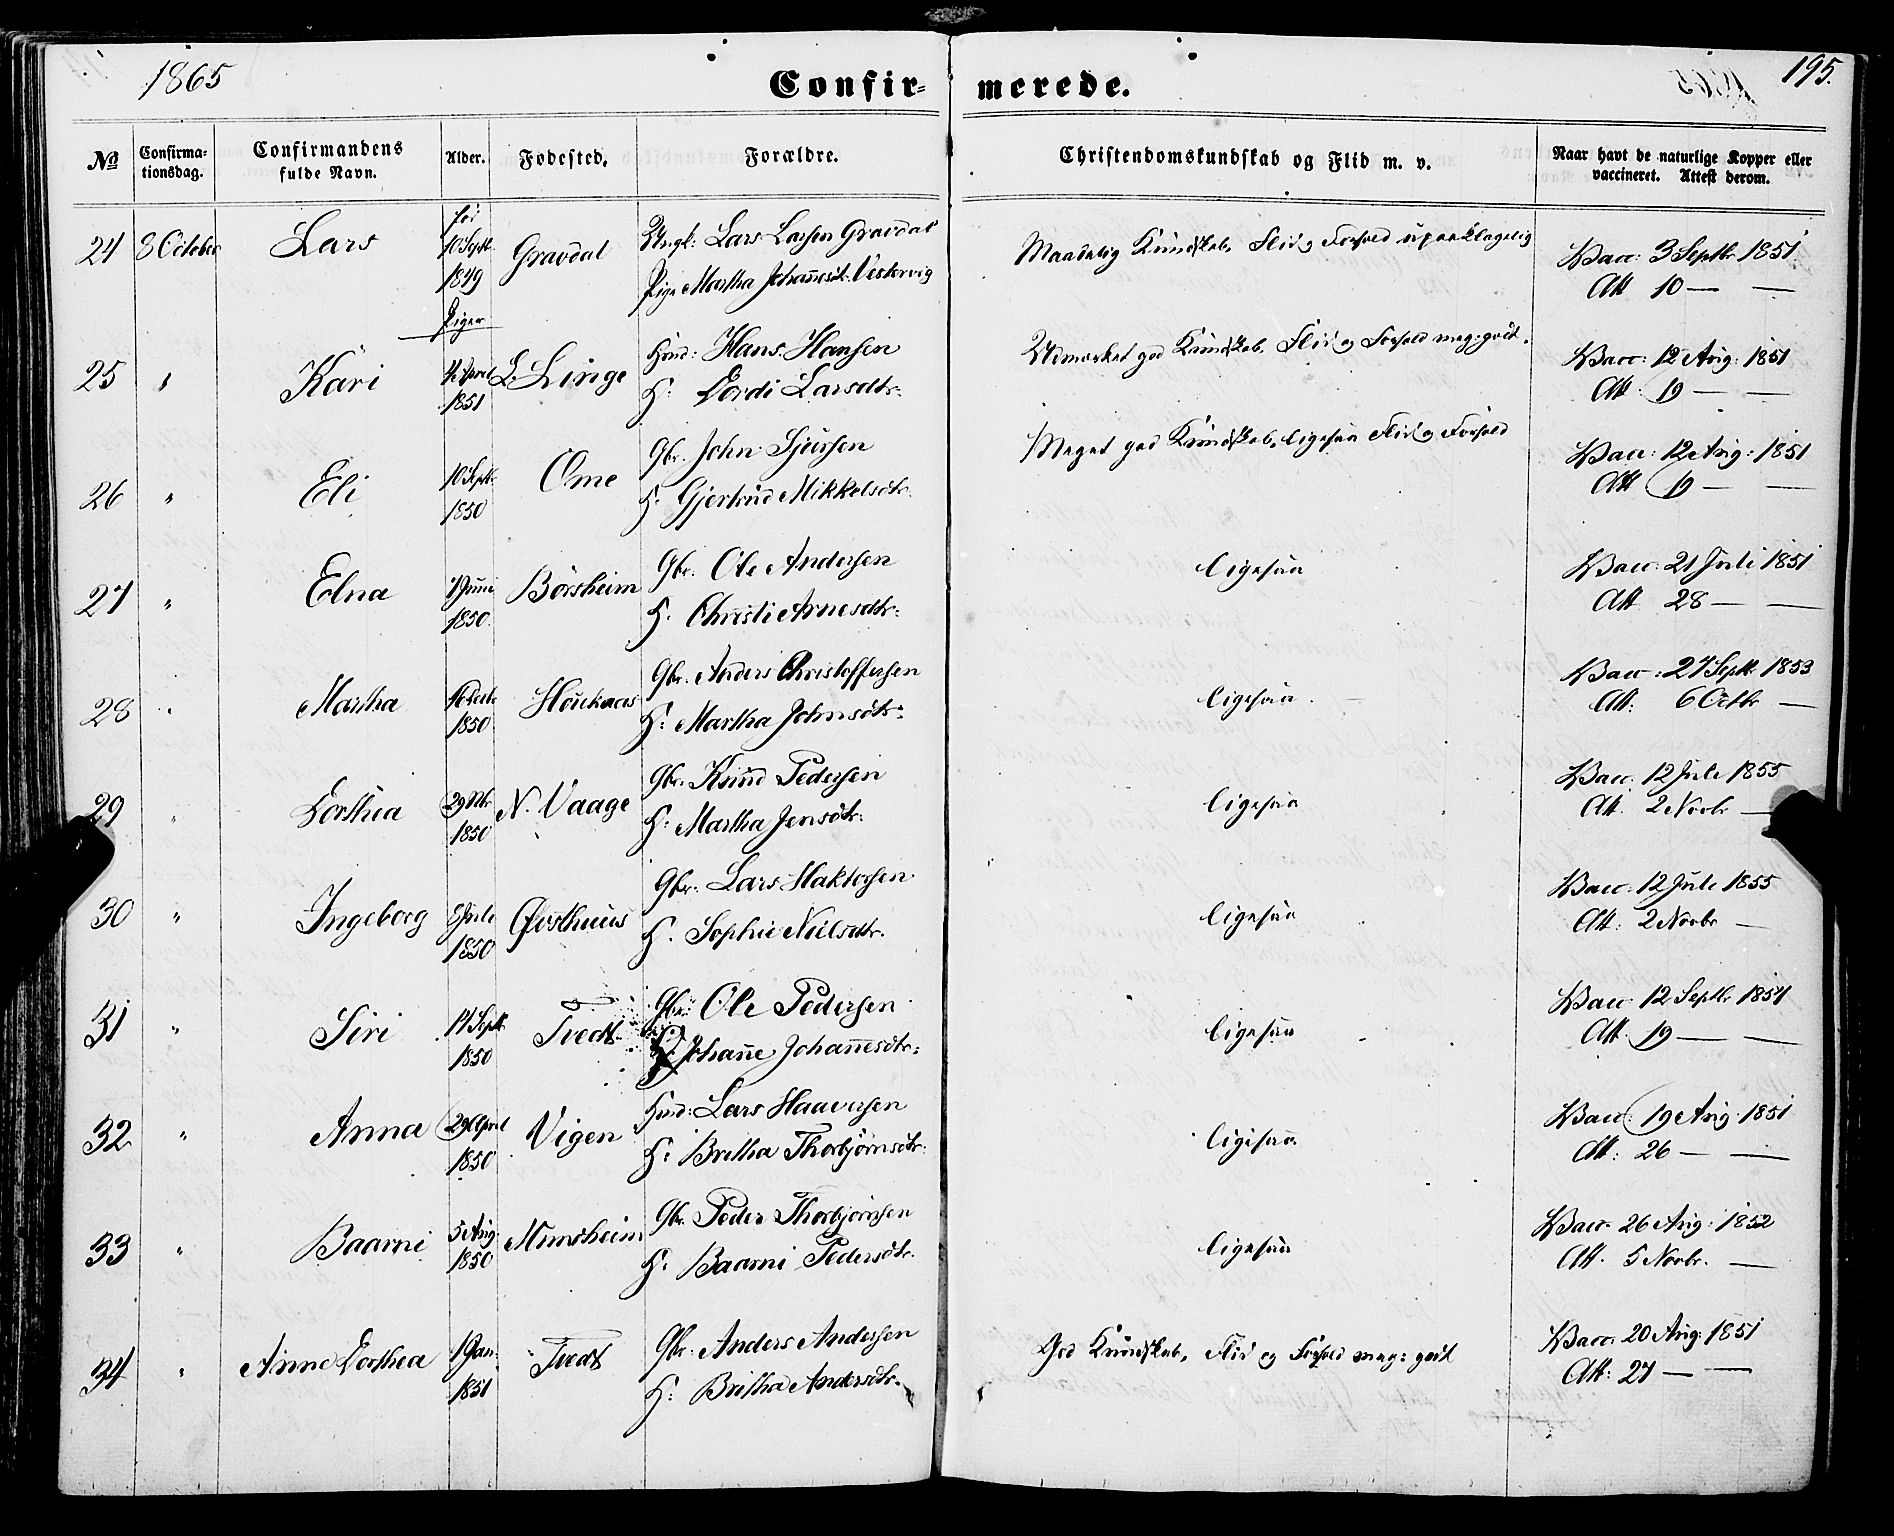 1865
Confir- merede.
195.
№ Confirma-tionsdag. Confirmandens fulde Navn. Alder. Fodested. Forældre. Christendomskundskab og Flid m. v. Naar havt de naturlige Kopper eller vaccineret. Attest derom.
24 8 October Lars 10 Septr. 1849 Gravdal Ungk: Lars Larsen Gravdal
Pige Martha Johannesdtr. Vestervig
Maadelig Kundskab, Flid og Forhold upaaklagelig
Vacc: 3 Septbr 1851
Att 10 — —
Piger
25 " Kari April 1851 L. Linge Hmd: Hans Hansen
H: Gordi Larsdtr.
Udmærket god Kundskab, Flid og Forhold meg: godt.
Vacc: 12 Aug: 1851
Att: 19 — —
26 " Eli 10 Septr. 1850 Ome Gbr. John Sjursen
H: Gjertrud Mikkelsdtr.
Meget god Kundskab, ligesaa Flid og Forhold
Vacc: 12 Aug: 1851
Att 19 — —
27 " Elna 7 Juni 1850 Børsheim Gbr. Ole Andersen
H. Christi Arnesdtr.
ligesaa
Vacc: 21 Juli 1851
Att 28 — —
28 " Martha 1850 Gbr. Anders Christoffersen
H: Martha Johnsdtr.
ligesaa
Vacc: 27 Septr. 1853
Att: 6 Octbr —
29 " Dorthea 29 1850 N. Vaage Gbr. Knud Pedersen
H: Martha Jensdtr.
ligesaa
Vacc. 12 Juli 1855
Att. 2 Novbr —
30 " Ingeborg 8 Juli 1850 Østhuus Gbr: Lars Haktorsen
H. Sophie Nielsdtr.
ligesaa
Vacc: 12 Juli 1855
Att: 2 Novbr —
31 " Siri 14 Septr. 1850 Tvedt Gbr: Ole Pedersen
H. Johanne Johannesdtr:
ligesaa
Vacc 12 Septbr 1854
Att. 19 — —
32 " Anna 29 April 1850 Vigen Hmd: Lars Haaversen
H: Britha Thorbjørnsdtr.
ligesaa
Vacc: 19 Aug. 1851
Att: 26 — —
33 " Baarni 5 Aug. 1850 Mundsheim Gbr. Peder Thorbjørnsen
H: Baarni Pedersdtr.
ligesaa
Vacc. 26 Aug: 1852
Att. 5 Novbr. —
34 " Anne Dorthea 1 Jan. 1851 Tvedt Gbr. Anders Andersen
H: Britha Andersdtr.
God Kundskab, Flid og Forhold meg: godt
Vacc: 20 Aug: 1851
Att: 27 — —